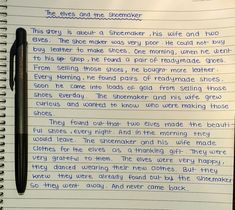 The elves and the Shoemaker
This story is about a Shoemaker, his wife and two
elves. The shoe maker was very poor. He could not buy
buy leather to make shoes. One morning, when he went
to his shop, he found a pair of readymade shoes.
From selling those shoes, he bought more leather.
Every Morning, he found pairs of readymade shoes.
Soon he came into loads of gold from selling those
shoes everday. The Shoemaker and his wife grew
curious and wanted to know who were making those
shoes.
They found out that two elves made the beauti-
ful shoes, every night. And in the morning they
would leave. The shoemaker and his wife made
clothes for the elves as a thanking gift. They were
very grateful to them. The elves were very happy,
they danced wearing their new clothes. But they
knew they were already found out by the Shoemaker
So they went away. And never came back.